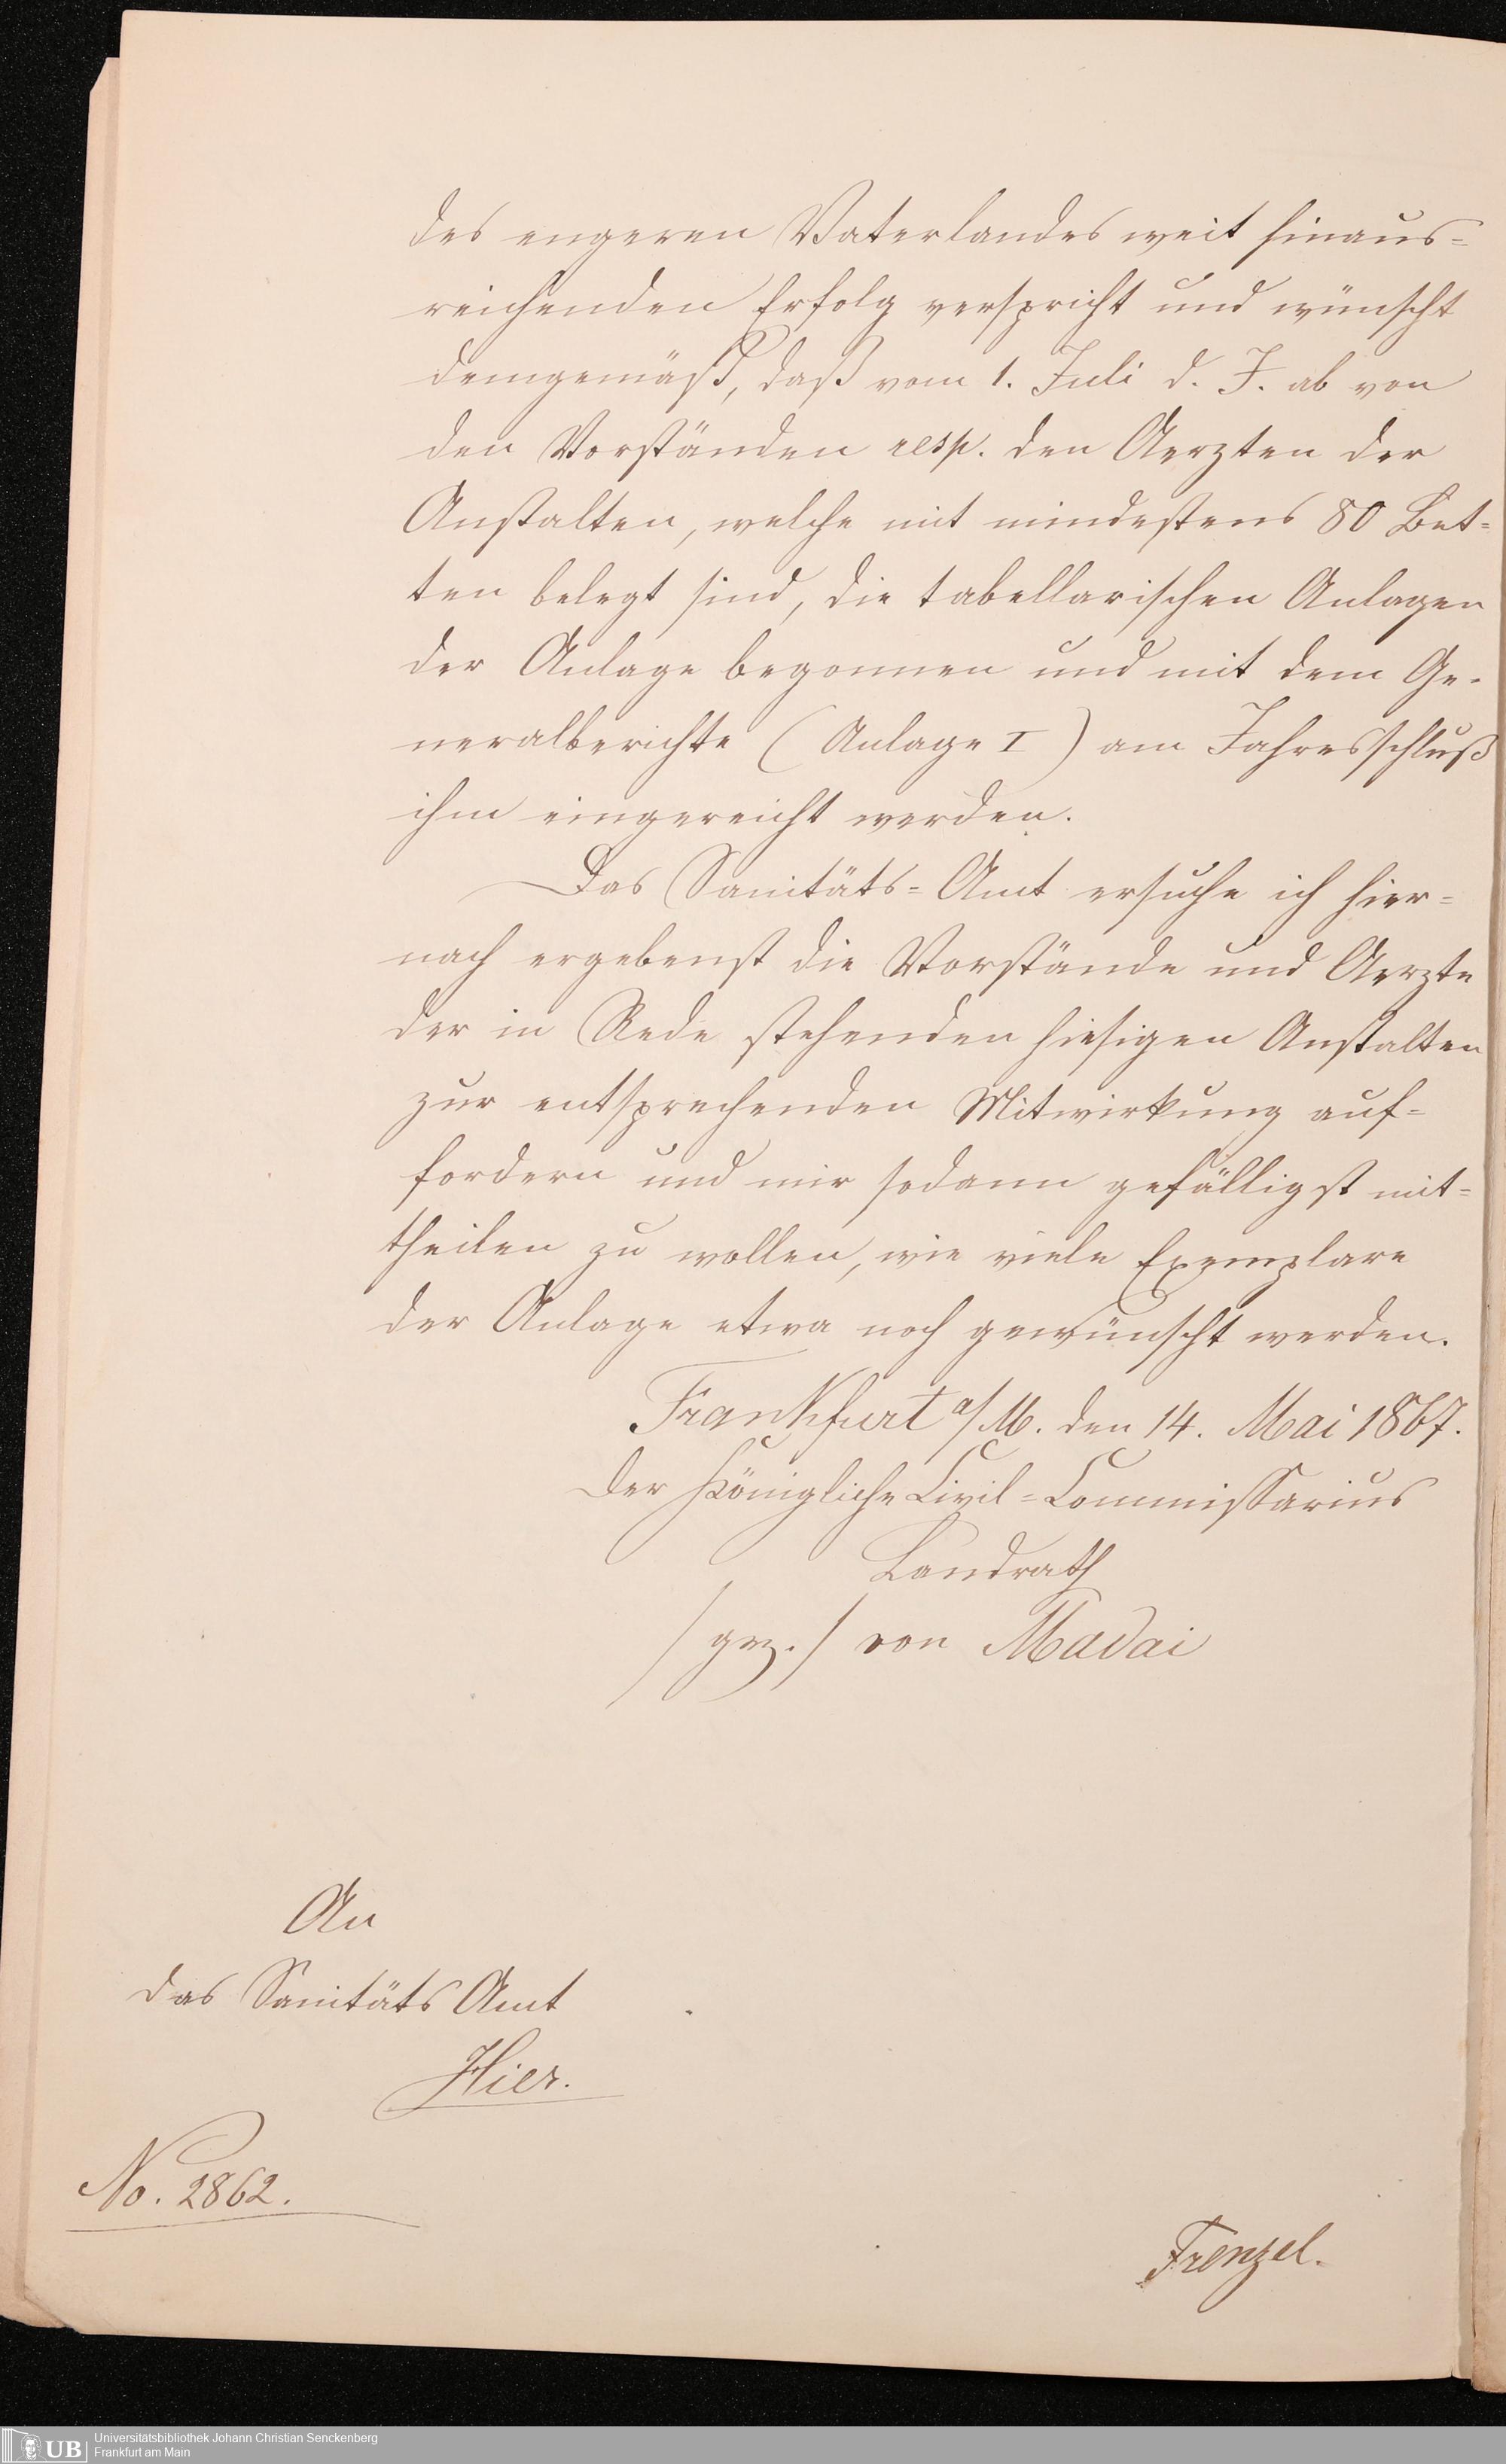 des engeren Vaterlandes weit hinaus-
reichenden Erfolg verspricht und wünscht
demgemäß, daß vom 1. Juli d. J. ab von
den Vorständen resp. den Aerzten der
Anstalten, welche mit mindestens 80 Bet-
ten belegt sind, die tabellarischen Anlagen
der Anlage begonnen und mit dem Ge-
neralberichte (Anlage I) am Jahresschluß
ihm eingereicht werden.
Das Sanitäts-Amt ersuche ich hier-
nach ergebenst die Vorstände und Aerzte
der in Rede stehenden hiesigen Anstalten
zur entsprechenden Mitwirkung auf-
fordern und mir sodann gefälligst mit-
theilen zu wollen, wie viele Exemplare
der Anlage etwa noch gewünscht werden.
Frankfurt a/M. den 14. Mai 1867.
Der Königliche Civil-Commissarius
Landrath
/gez./ von Madai
An
das Sanitäts Amt
Hier.
No. 2862.
Frenzel.
UB Universitätsbibliothek Johann Christian Senckenberg
Frankfurt am Main